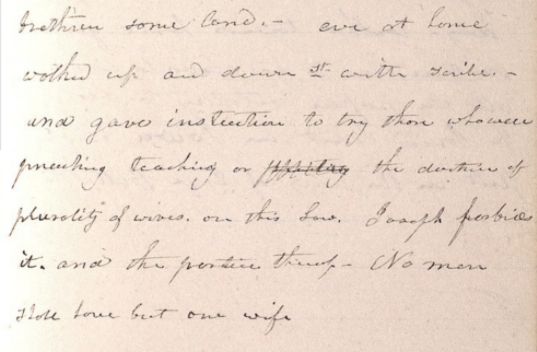 brethren some land.– eve at home
walked up and down st. with scribe.–
and gave inst[r]uction to try those who were
preaching teaching or the doctrine of
plurality of wives. on this Law. Joseph forbids
it. and the practice thereof– No man
shall have but one wife